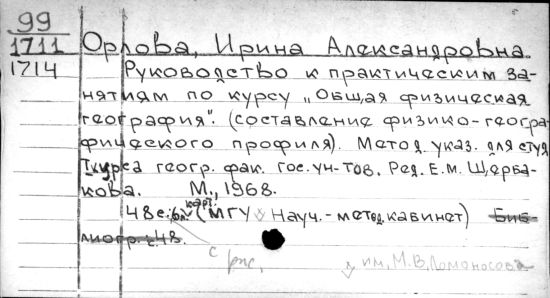 99
1711 Орлова, Ирина Александровна.
1714 Руководство к практическим за-
нятиям по курсу „Общая физическая
география". (составление физико-геогра-
фического профиля). Метод. указ. для студ.
I курса геогр. фак. гос. ун-тов. Ред. Е.М. Щерба-
кова. М., 1968.
карт.
48 с. (МГУ Науч.-метод. кабинет) Биб-
лиогр. с. 48.
с рис.
им. М.В. Ломоносова